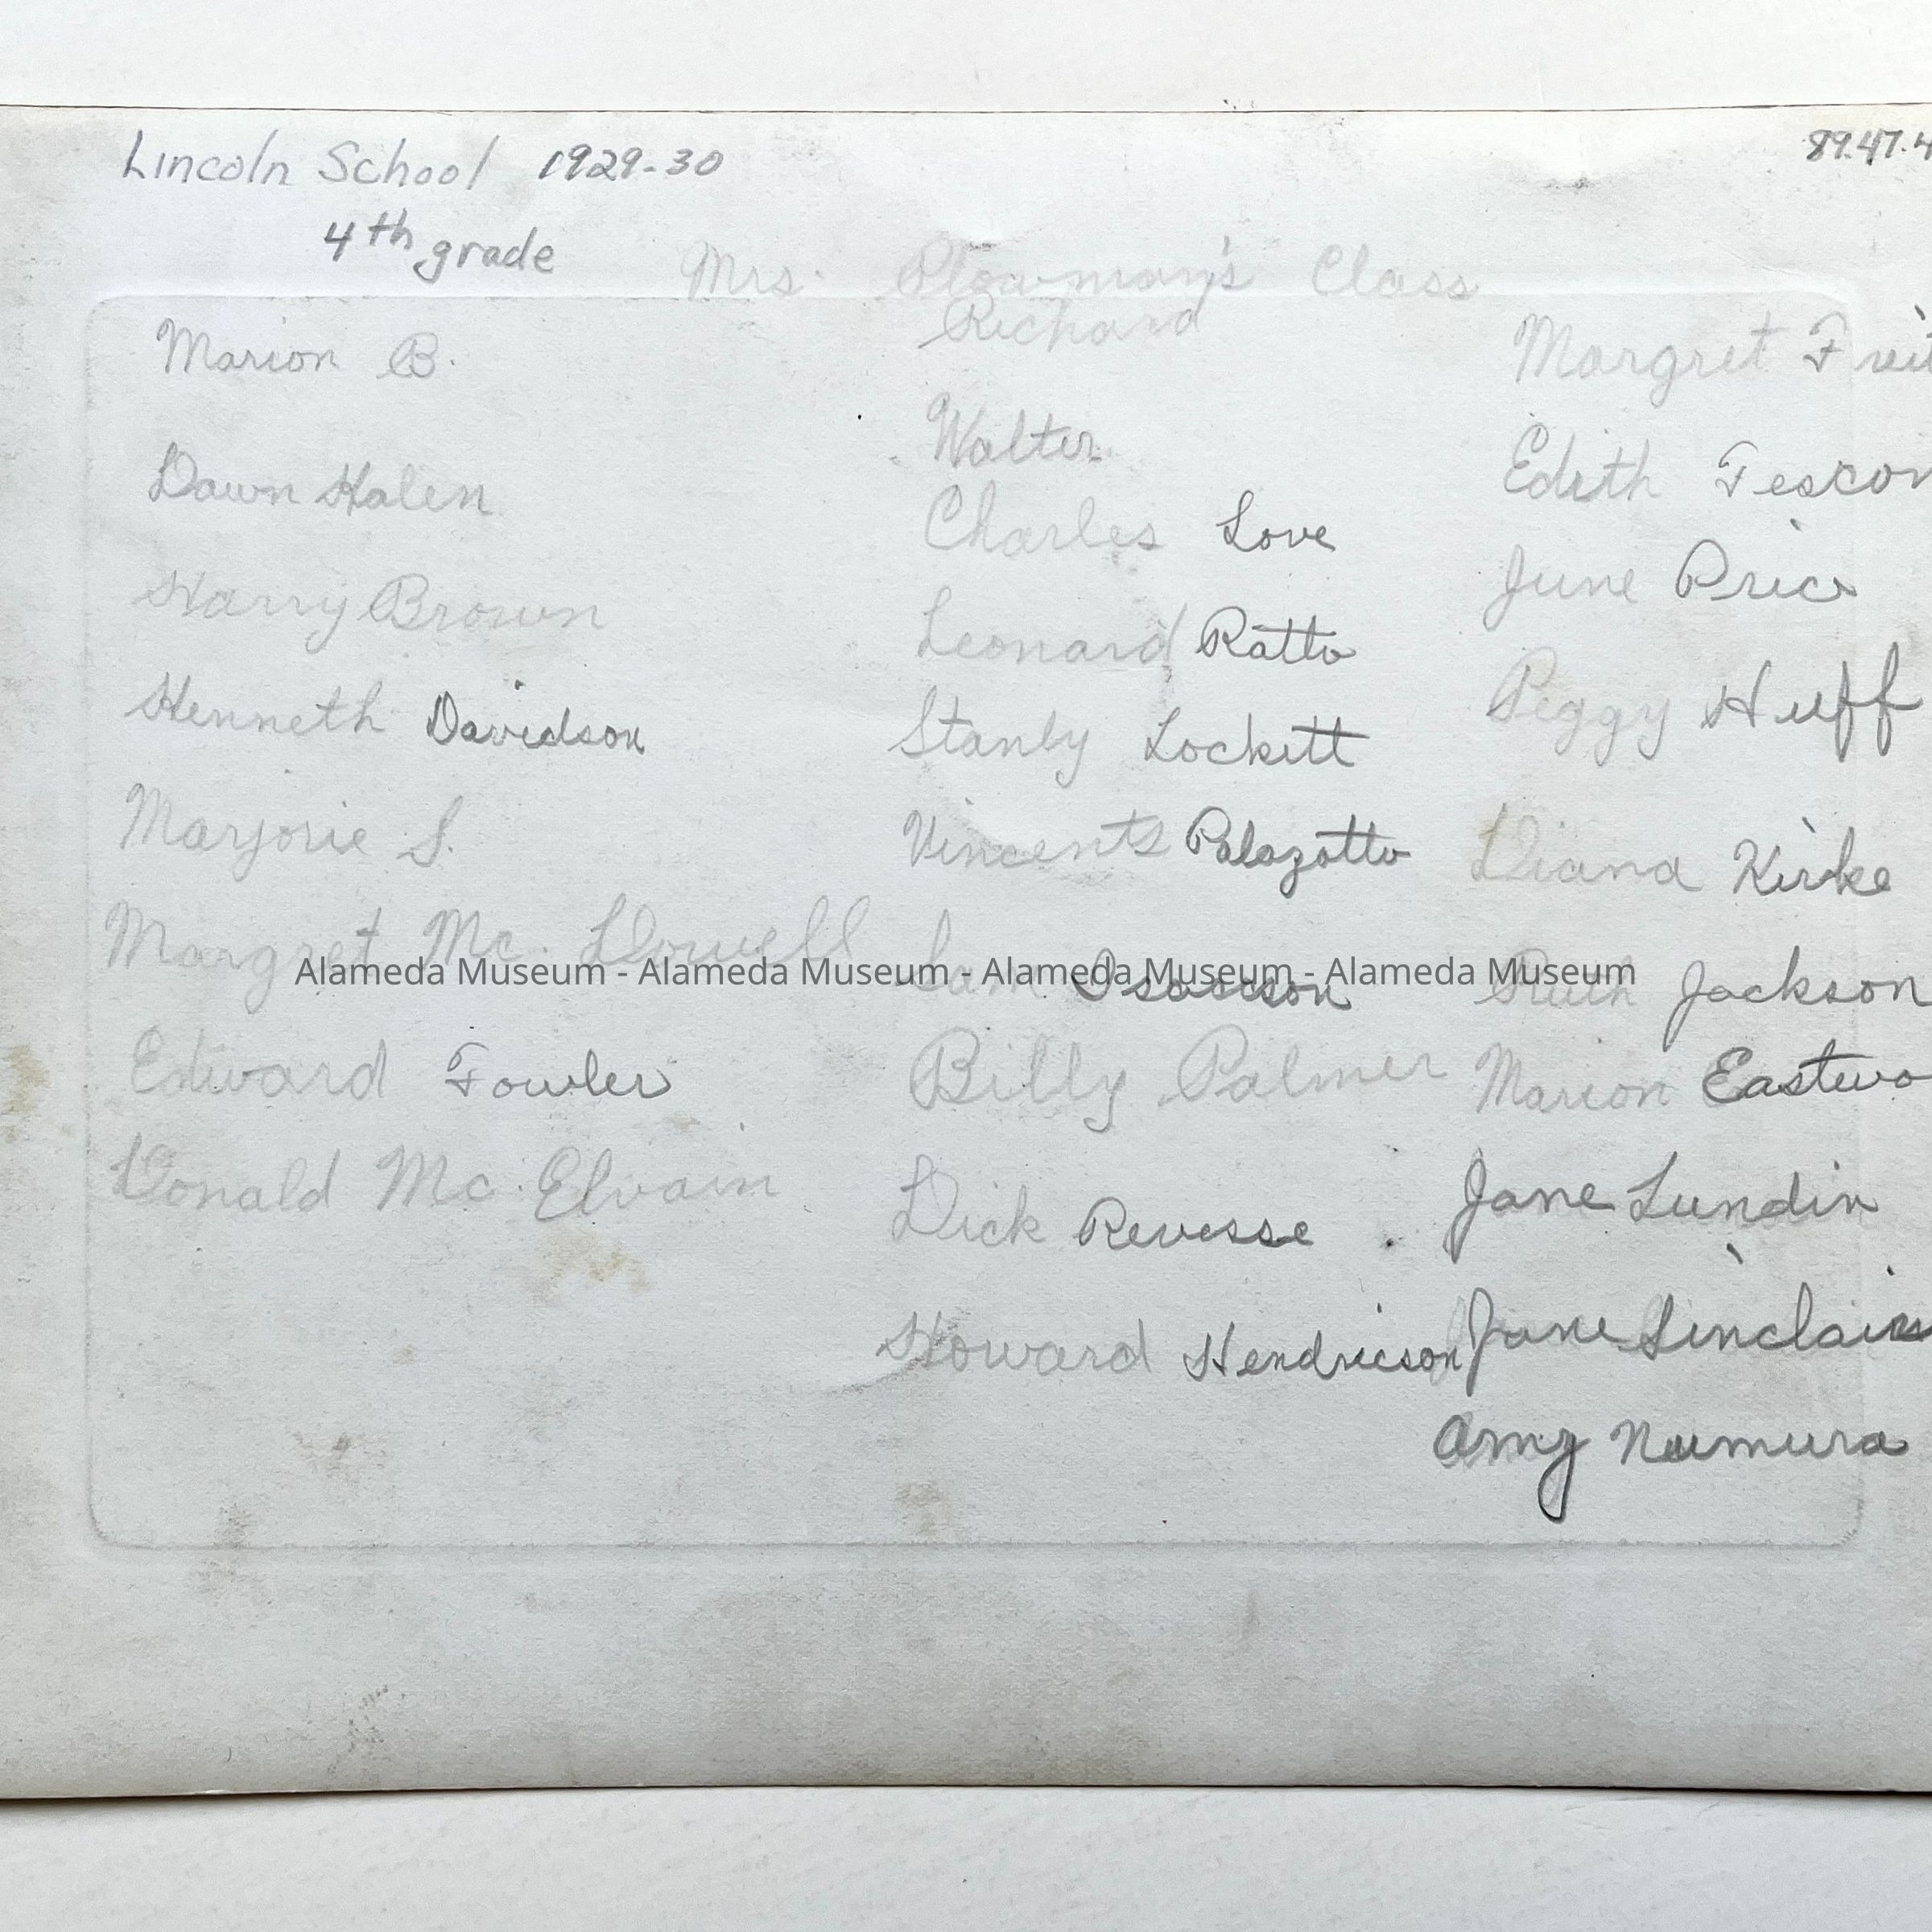 Lincoln School 1929-30
89.47.4
4th grade
Mrs. Plowman's Class
Marion B.
Dawn Halen
Harry Brown
Henneth Davidson
Marjorie S.
Margret Mc. Dowell
Edward Fowler
Donald Mc. Elvain
Richard
Walter
Charles Love
Leonard Ratto
Stanly Lockett
Vincent Palazotto
Sam Isaacson
Billy Palmer
Dick Revesse
Howard Hendricson
Margret Freit
Edith Tescon
June Price
Peggy Huff
Diana Kirke
Ruth Jackson
Marion Eastwo
Jane Lundin
Jane Sinclair
Amy Numura
Alameda Museum - Alameda Museum - Alameda Museum - Alameda Museum